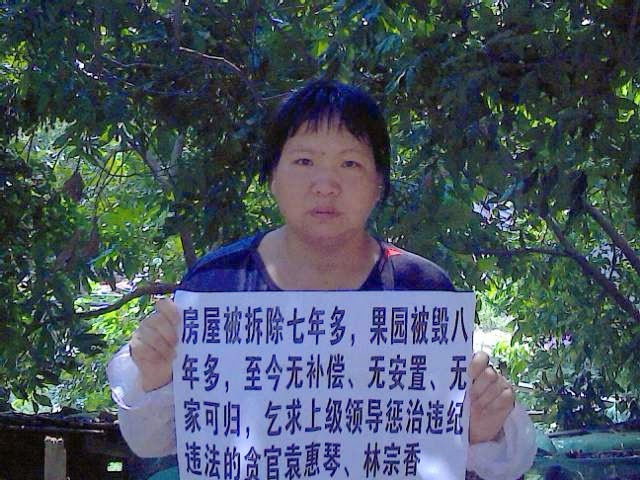 房屋被拆除七年多，果园被毁八
年多，至今无补偿、无安置、无
家可归，乞求上级领导惩治违纪
违法的贪官袁惠琴、林宗香